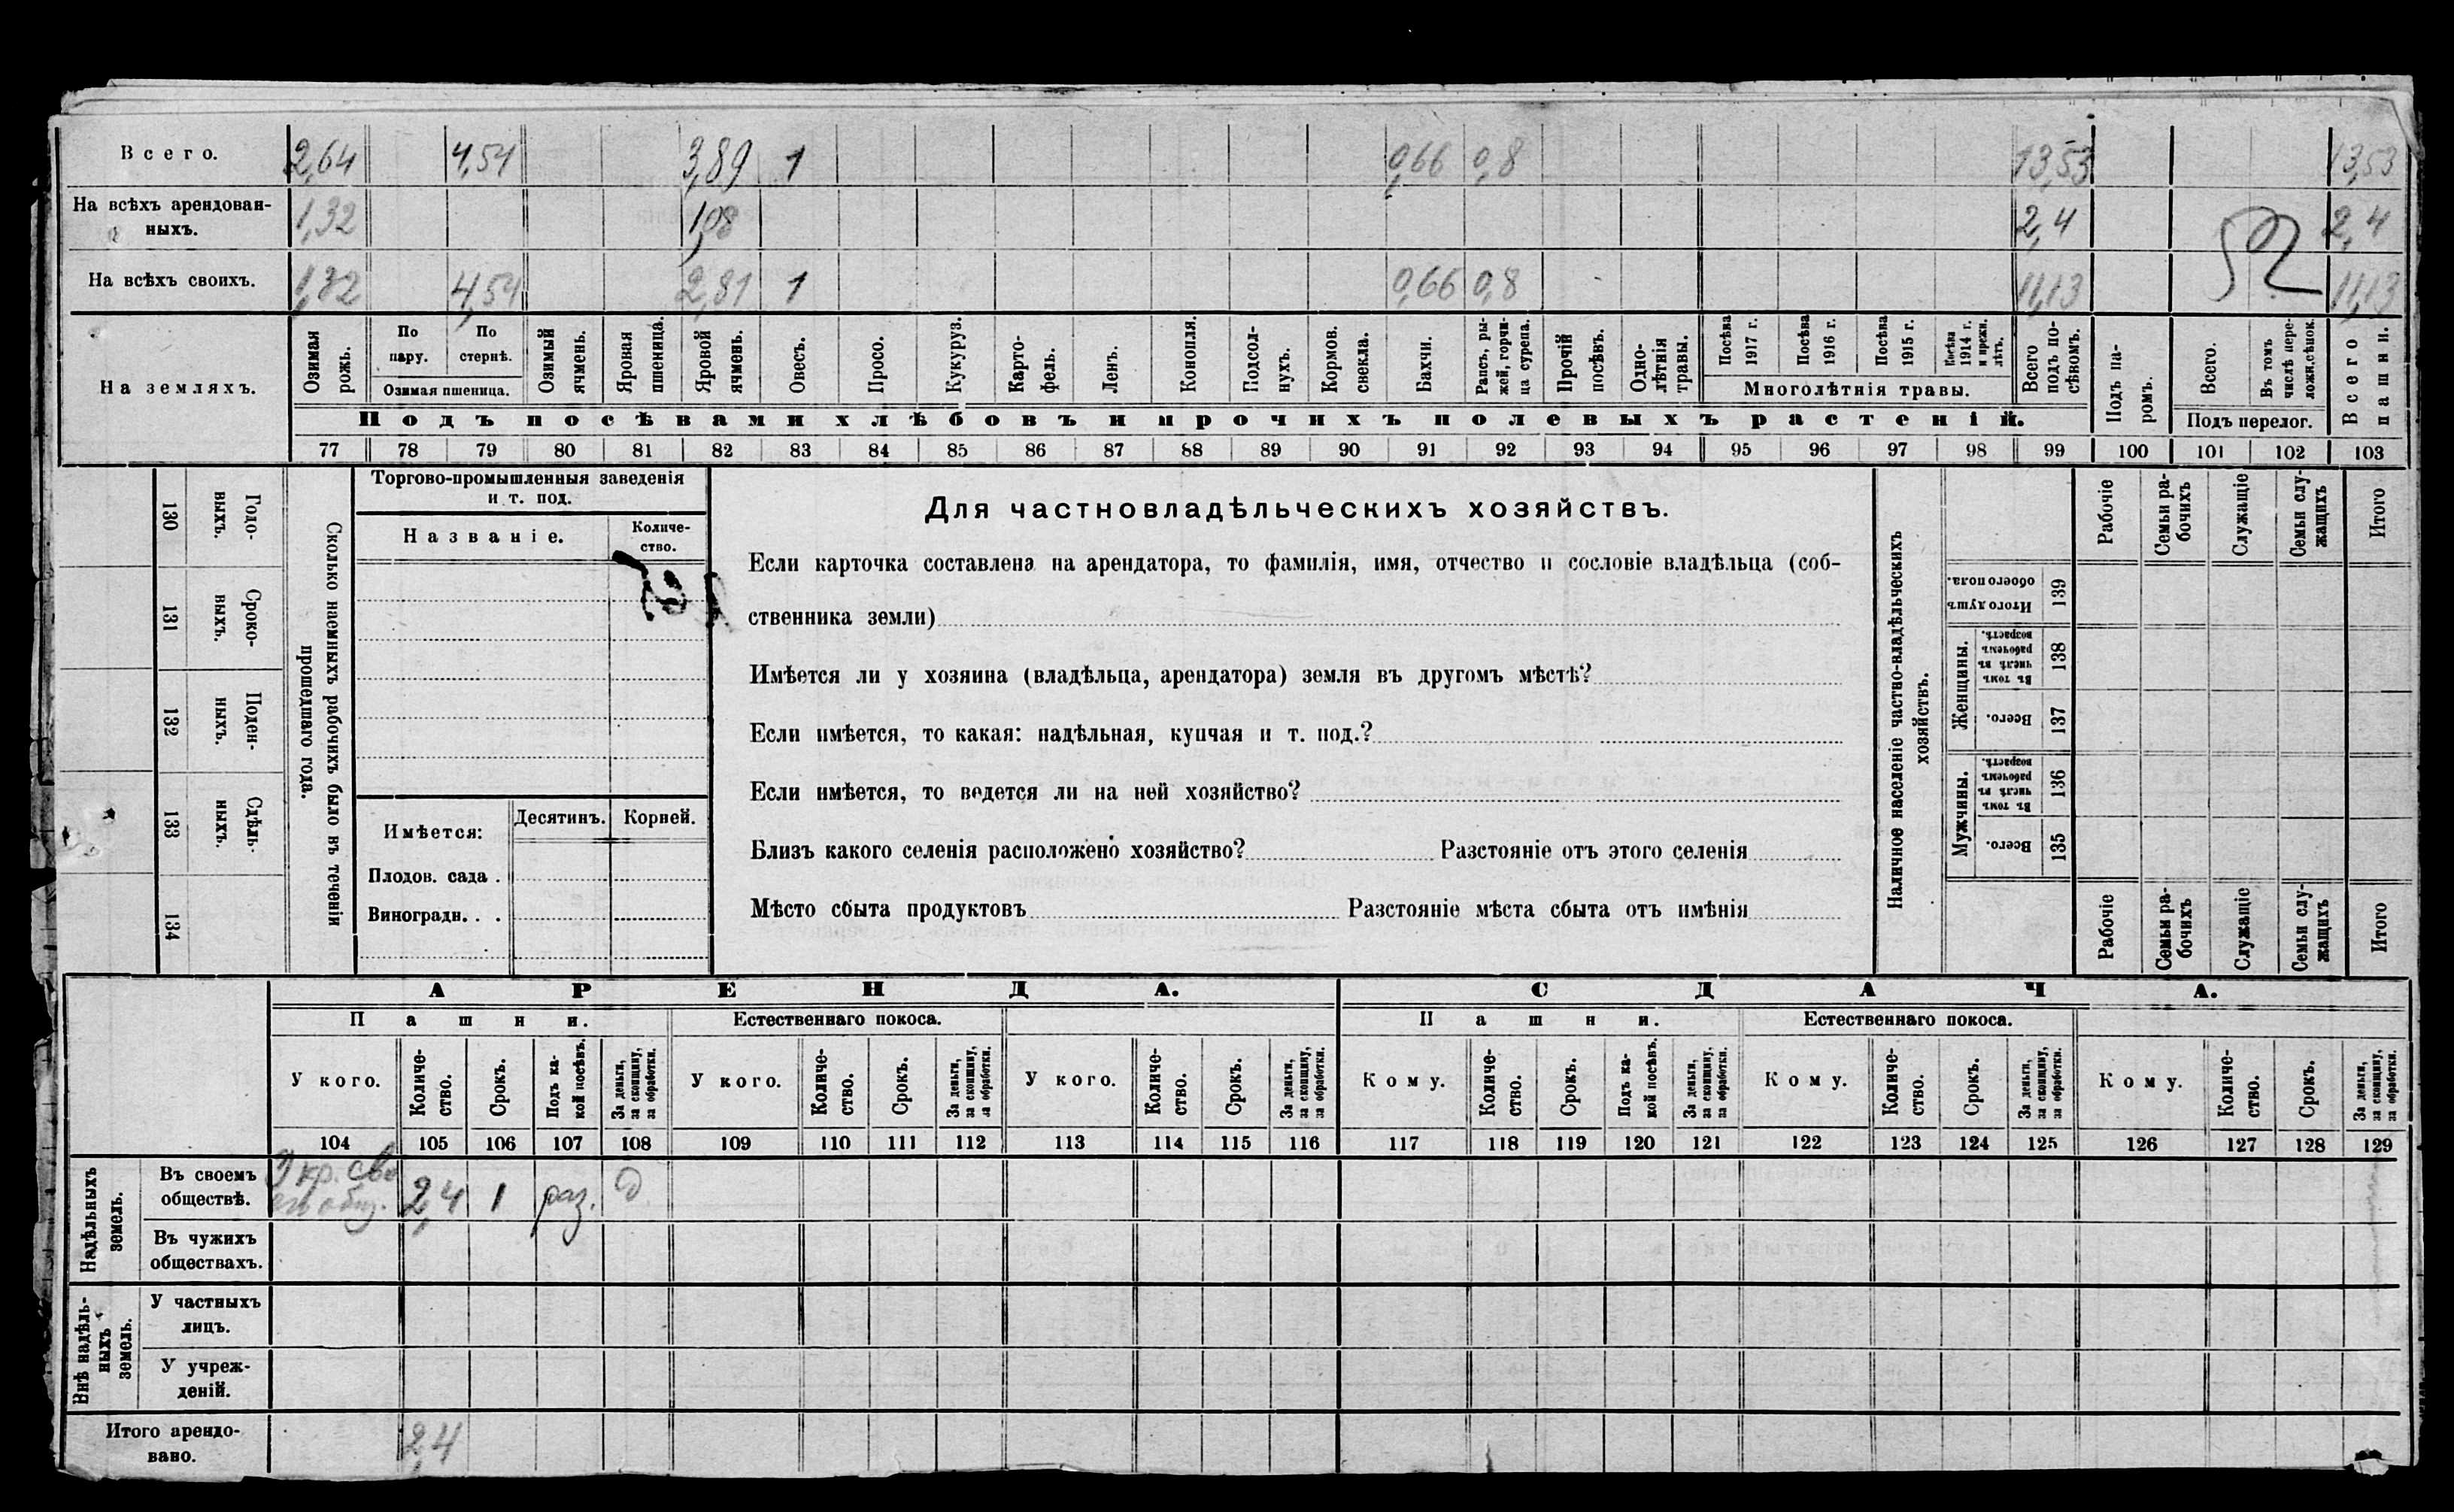 Всего. 2,64 4,54 3,89 1 0,66 0,8 13,53 13,53
На всѣхъ арендован-
ныхъ. 1,32 1,08 2,4 2,4
На всѣхъ своихъ. 1,32 4,54 2,81 1 0,66 0,8 11,13 11,13
На земляхъ.
Озимая рожь.
По пару.
По стернѣ.
Озимая пшеница.
Озимый ячмень.
Яровая пшеница.
Яровой ячмень.
Овесъ.
Просо.
Кукуруз.
Карто-
фель.
Ленъ.
Конопля.
Подсол-
нухъ.
Кормов. свекла.
Бахчи.
Рапсъ, ры-
жей, горчи-
ца сурепа.
Прочій посѣвъ.
Одно-
лѣтнія травы.
Посѣва 1917 г.
Посѣва 1916 г.
Посѣва 1915 г.
Посѣва 1914 г. и прежн. лѣтъ.
Многолѣтнія травы.
Всего подъ по-
сѣвомъ.
Подъ па-
ромъ.
Всего.
Въ томъ числѣ пере-
ложн.сѣнок.
Подъ перелог.
Всего пашни.
Подъ посѣвами хлѣбовъ и прочихъ полевыхъ растеній.
77 78 79 80 81 82 83 84 85 86 87 88 89 90 91 92 93 94 95 96 97 98 99 100 101 102 103
130 Годо-
выхъ.
131 Сроко-
выхъ.
132 Поден-
ныхъ.
133 Сдѣль-
ныхъ.
134
Сколько наемныхъ рабочихъ было въ теченіи
прошедшаго года.
Торгово-промышленныя заведенія
и т. под.
Названіе.
Количе-
ство.
Имѣется: Десятинъ. Корней.
Плодов. сада .
Виноградн. . .
Для частновладѣльческихъ хозяйствъ.
Если карточка составлена на арендатора, то фамилія, имя, отчество и сословіе владѣльца (соб-
ственника земли)
Имѣется ли у хозяина (владѣльца, арендатора) земля въ другомъ мѣстѣ?
Если имѣется, то какая: надѣльная, купчая и т. под.?
Если имѣется, то ведется ли на ней хозяйство?
Близъ какого селенія расположено хозяйство? Разстояніе отъ этого селенія
Мѣсто сбыта продуктовъ Разстояніе мѣста сбыта отъ имѣнія
Наличное населеніе частно-владѣльческихъ
хозяйствъ.
Рабочіе
Семьи ра-
бочихъ
Служащіе
Семьи слу-
жащихъ
Итого
Итого душъ обоего пола. 139
Женщины.
Въ томъ числѣ въ рабочемъ возрастѣ. 138
Всего. 137
Мужчины.
Въ томъ числѣ въ рабочемъ возрастѣ. 136
Всего. 135
Рабочіе
Семьи ра-
бочихъ
Служащіе
Семьи слу-
жащихъ
Итого
АРЕНДА. СДАЧА.
Пашни. Естественнаго покоса. Пашни. Естественнаго покоса.
У кого.
Количе-
ство.
Срокъ.
Подъ ка-
кой посѣвъ.
За деньги, за скопщину, за обработки.
У кого.
Количе-
ство.
Срокъ.
За деньги, за скопщину, за обработки.
У кого.
Количе-
ство.
Срокъ.
За деньги, за скопщину, за обработки.
Кому.
Количе-
ство.
Срокъ.
Подъ ка-
кой посѣвъ.
За деньги, за скопщину, за обработки.
Кому.
Количе-
ство.
Срокъ.
За деньги, за скопщину, за обработки.
Кому.
Количе-
ство.
Срокъ.
За деньги, за скопщину, за обработки.
104 105 106 107 108 109 110 111 112 113 114 115 116 117 118 119 120 121 122 123 124 125 126 127 128 129
Надѣльныхъ
земель.
Въ своемъ
обществѣ. У кр. сво
его общ. 2,4 1 раз. д
Въ чужихъ
обществахъ.
Внѣ надѣль-
ныхъ
земель.
У частныхъ
лицъ.
У учреж-
деній.
Итого арендо-
вано. 2,4